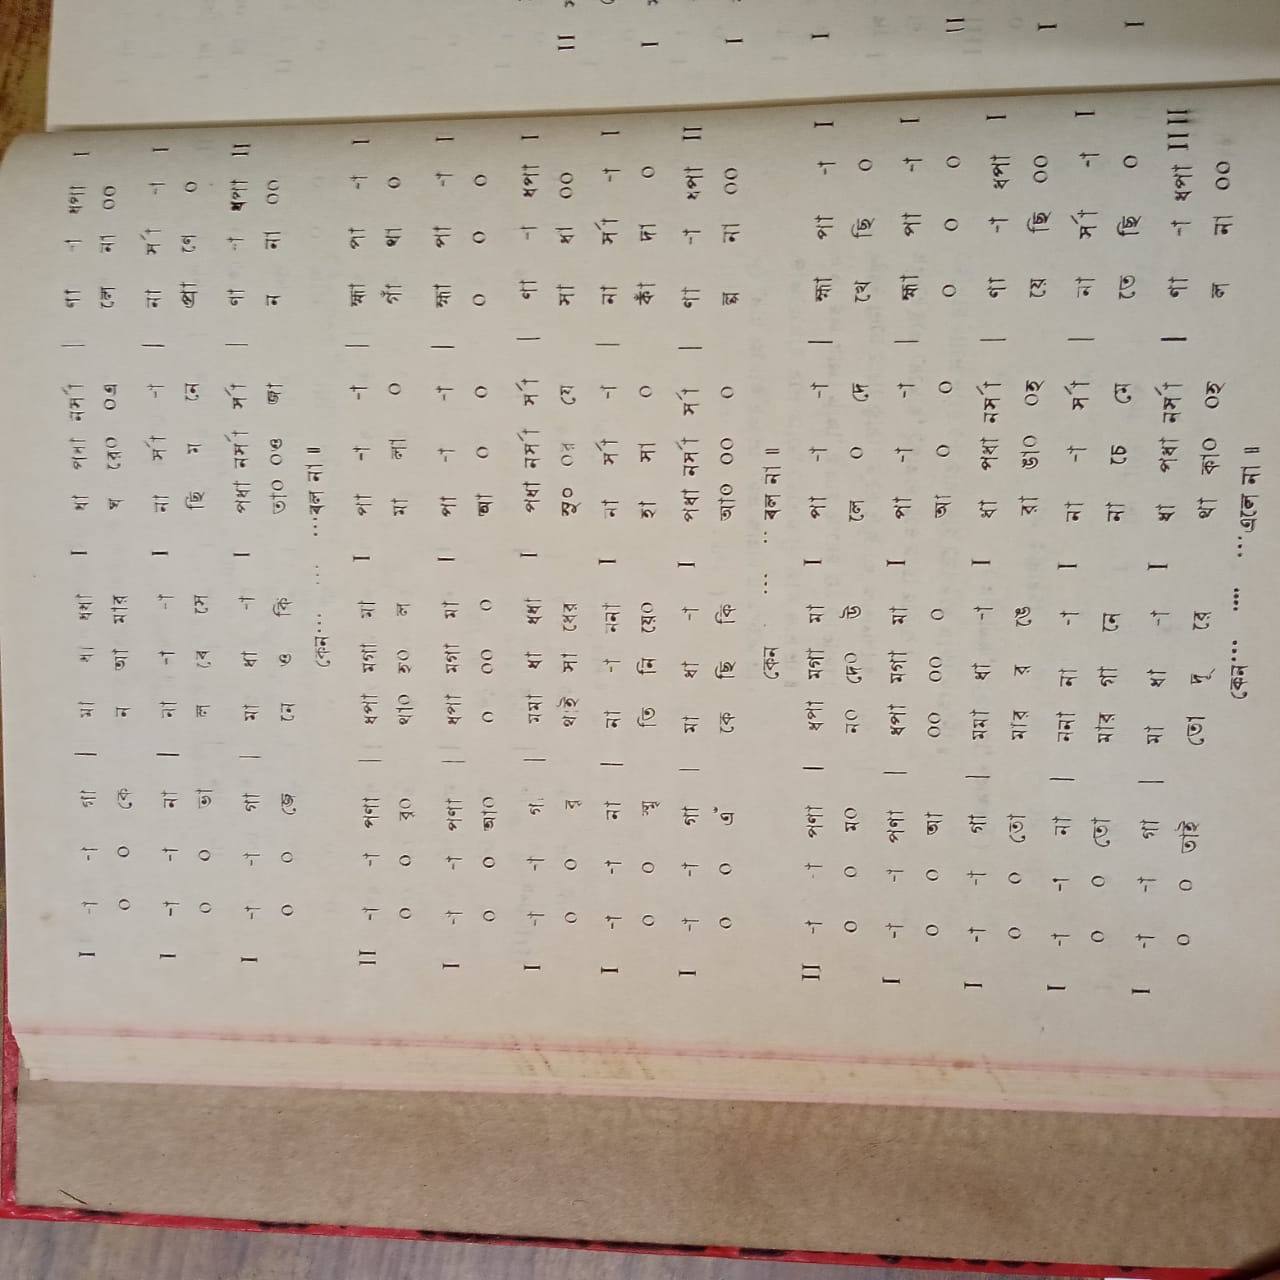 I -া -া গা | মা ধা ধমা I ধা পধা নর্সা | ণা -া ধপা I
০ ০ কে ন আ মার ঘ রে০ ০এ লে না ০০
I -া -া না | না -া -া I না র্সা -া | না র্সা -া I
০ ০ ভা ল বে সে ছি ল নে প্রা ণে ০
I -া -া গা | মা ধা -া I পধা নর্সা র্সা | ণা -া ধপা II
০ ০ জে নে ও কি তা০ ০ও জা ন না ০০
কেন... ... ...বল না॥
II -া -া পণা | ধপা মগা মা I পা -া -া | হ্মা পা -া I
০ ০ র০ থা০ হ০ ল মা লা ০ গাঁ থা ০
I -া -া পণা | ধপা মগা মা I পা -া -া | হ্মা পা -া I
০ ০ আ০ ০ ০০ ০ আ ০ ০ ০ ০ ০
I -া -া | মমা ধা ধধা I পধা নর্সা র্সা | ণা -া ধপা I
০ ০ র থাই সা ধের সু০ ০র যে সা ধা ০০
I -া -া না | না -া ননা I না র্সা -া | না র্সা -া I
০ ০ স্মৃ তি নি য়ে০ হা সা ০ কাঁ দা ০
I -া -া গা | মা ধা -া I পধা নর্সা র্সা | ণা -া ধপা II
০ ০ এঁ কে ছি কি আ০ ০০ ০ ল্প না ০০
কেন ... .. বল না॥
II -া -া পণা | ধপা মগা মা I পা -া -া | হ্মা পা -া I
০ ০ ম০ ন০ দে০ উ লে ০ দে খে ছি ০
I -া -া পণা | ধপা মগা মা I পা -া -া | হ্মা পা -া I
০ ০ আ ০০ ০০ ০ আ ০ ০ ০ ০ ০
I -া -া গা | মমা ধা -া I ধা পধা নর্সা | ণা -া ধপা I
০ ০ তো মার র তে রা ভা০ ০ই য়ে ছি ০০
I -া -া না | ননা না -া I না -া র্সা | না র্সা -া I
০ ০ তো মার গা নে না চে মে তে ছি ০
I -া -া গা | মা ধা -া I ধা পধা নর্সা | ণা -া ধপা II II
০ ০ তাই তো দূ রে থা কা০ ০ই ল না ০০
কেন... .... ...এলে না॥